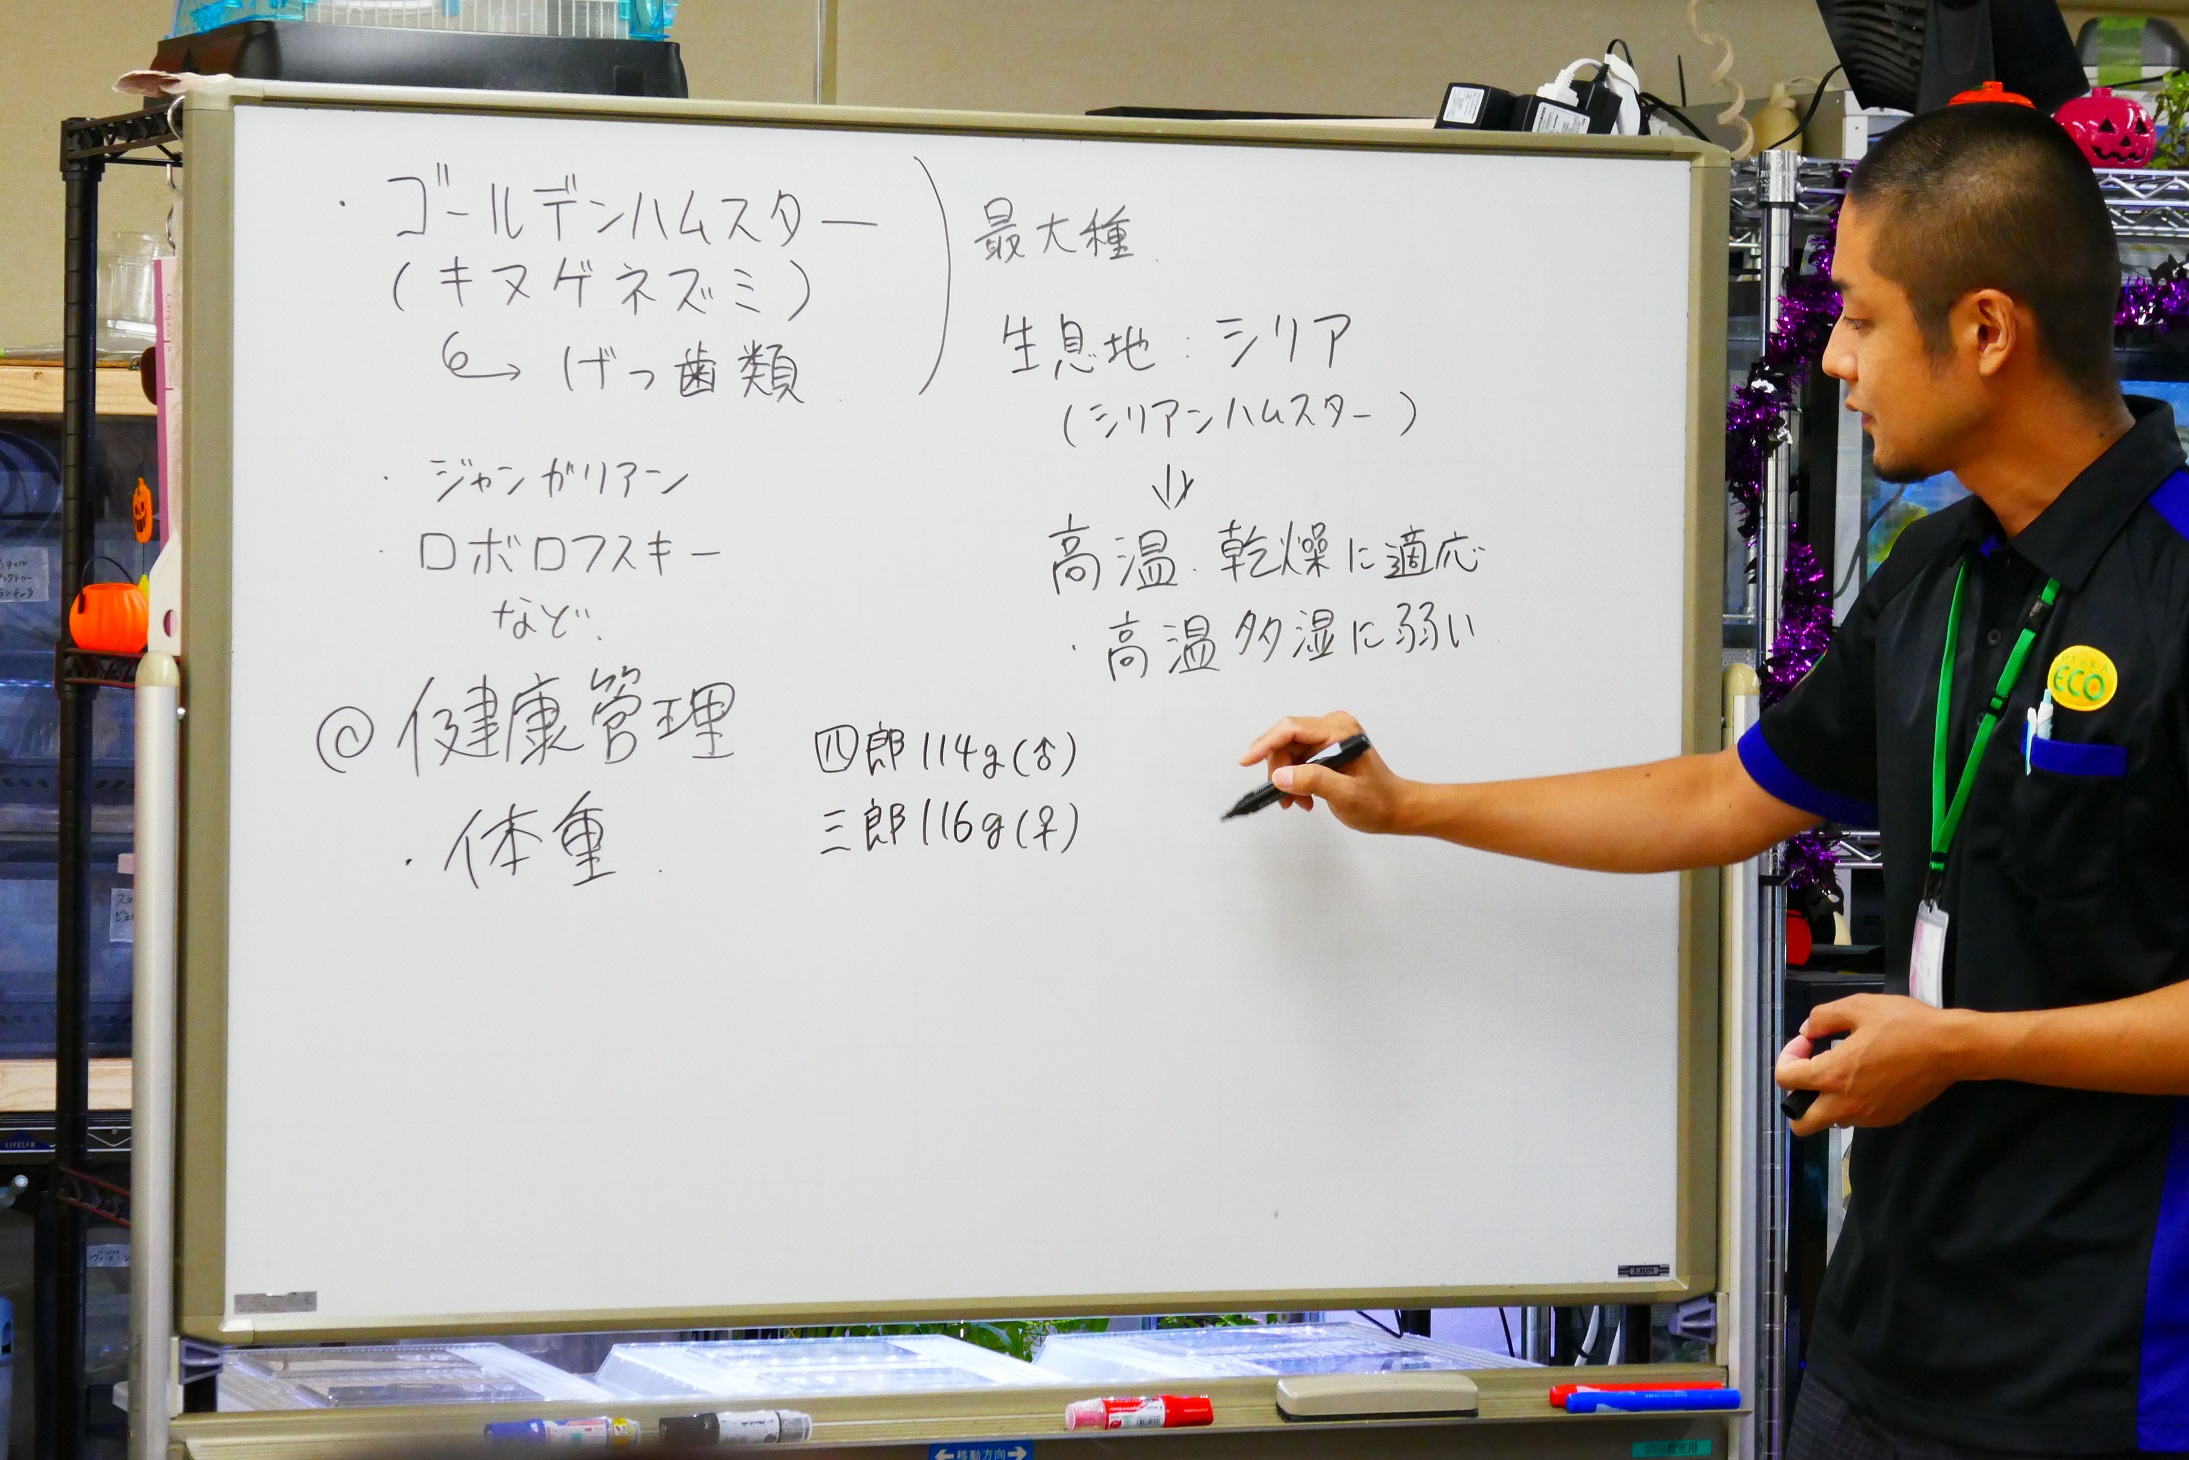 ・ゴールデンハムスター
(キヌゲネズミ)
げっ歯類
・ジャンガリアン
・ロボロフスキー
など.
@健康管理
・体重
最大種
生息地:シリア
(シリアンハムスター)
高温.乾燥に適応
・高温多湿に弱い
四郎114g(♂)
三郎116g(♀)
ECO
LION
←移動方向→